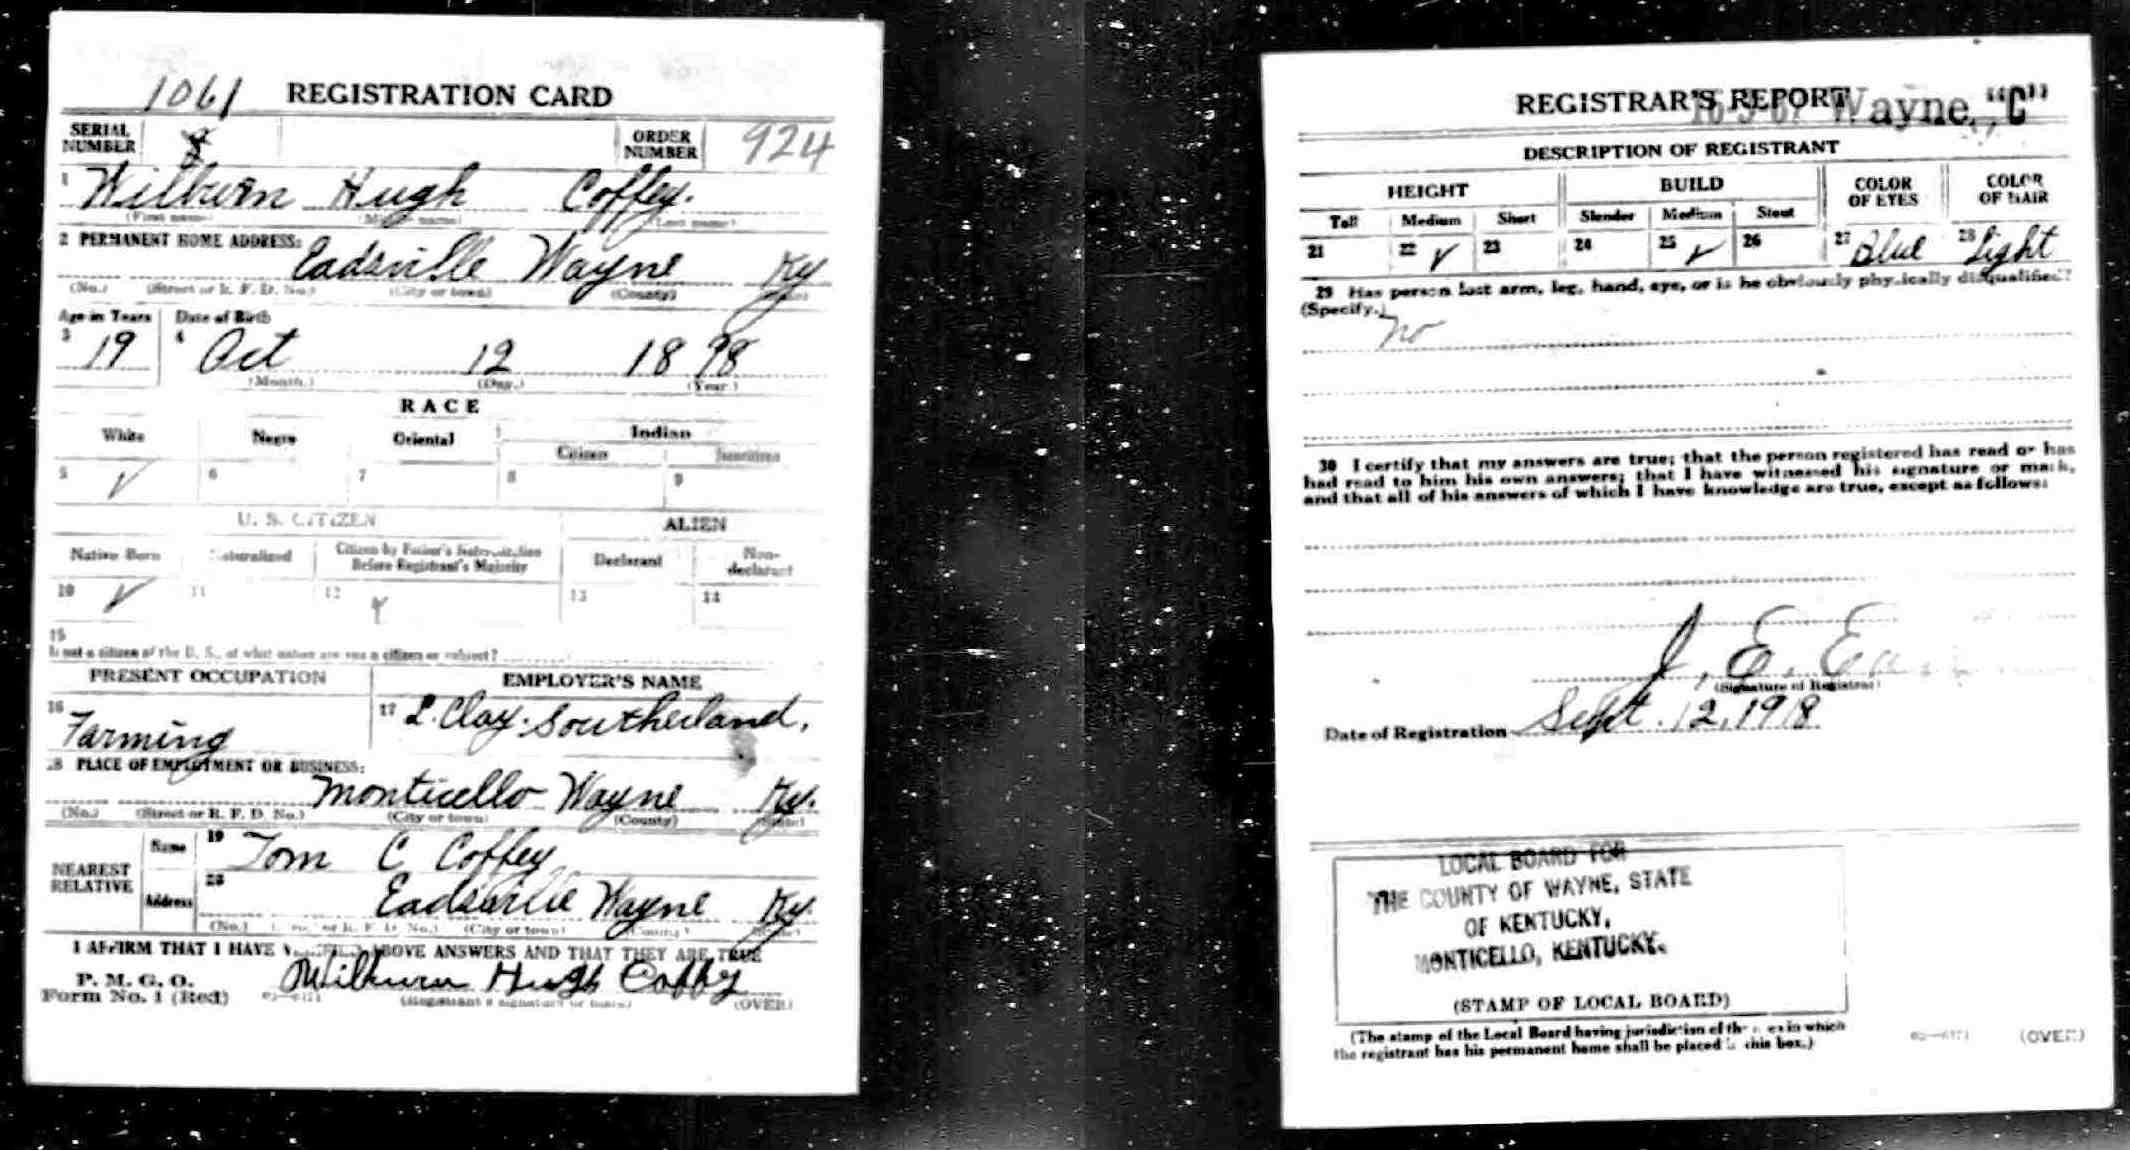 1061 REGISTRATION CARD
SERIAL NUMBER
ORDER NUMBER 924
1 Wilburn Hugh Coffey.
(First name) (Middle name) (Last name)
2 PERMANENT HOME ADDRESS:
Eadsville Wayne Ky
(No.) (Street or R. F. D. No.) (City or town) (County)
Age in Years Date of Birth
3 19 4 Oct 12 1898
(Month.) (Day.) (Year.)
RACE
White Negro Oriental Indian
Citizen
5 ✓ 6 7 8 9
U. S. CITIZEN ALIEN
Native Born Naturalized Citizen by Father's Naturalization Before Registrant's Majority Declarant Non-declarant
10 ✓ 11 12 13 14
15
If not a citizen of the U. S., of what nation are you a citizen or subject?
PRESENT OCCUPATION EMPLOYER'S NAME
16 Farming 17 L. Clay. Southerland.
18 PLACE OF EMPLOYMENT OR BUSINESS:
Monticello Wayne Ky.
(No.) (Street or R. F. D. No.) (City or town) (County) (State)
NEAREST RELATIVE
Name 19 Tom C Coffey
Address 20 Eadsville Wayne Ky.
(No.) (City or town) (County)
I AFFIRM THAT I HAVE VERIFIED ABOVE ANSWERS AND THAT THEY ARE TRUE
P. M. G. O.
Form No. 1 (Red)
Wilburn Hugh Coffey
(Registrant's signature or mark)
(OVER)
REGISTRAR'S REPORT
Wayne, "C"
DESCRIPTION OF REGISTRANT
HEIGHT BUILD COLOR OF EYES COLOR OF HAIR
Tall Medium Short Slender Medium Stout
21 22 ✓ 23 24 25 ✓ 26 27 Blue 28 Light
29 Has person lost arm, leg, hand, eye, or is he obviously physically disqualified?
(Specify.) no
30 I certify that my answers are true; that the person registered has read or has
had read to him his own answers; that I have witnessed his signature or mark,
and that all of his answers of which I have knowledge are true, except as follows:
J. E.
(Signature of Registrar)
Date of Registration Sept. 12, 1918
LOCAL BOARD FOR
THE COUNTY OF WAYNE, STATE
OF KENTUCKY,
MONTICELLO, KENTUCKY.
(STAMP OF LOCAL BOARD)
(The stamp of the Local Board having jurisdiction of the area in which
the registrant has his permanent home shall be placed in this box.)
(OVER)